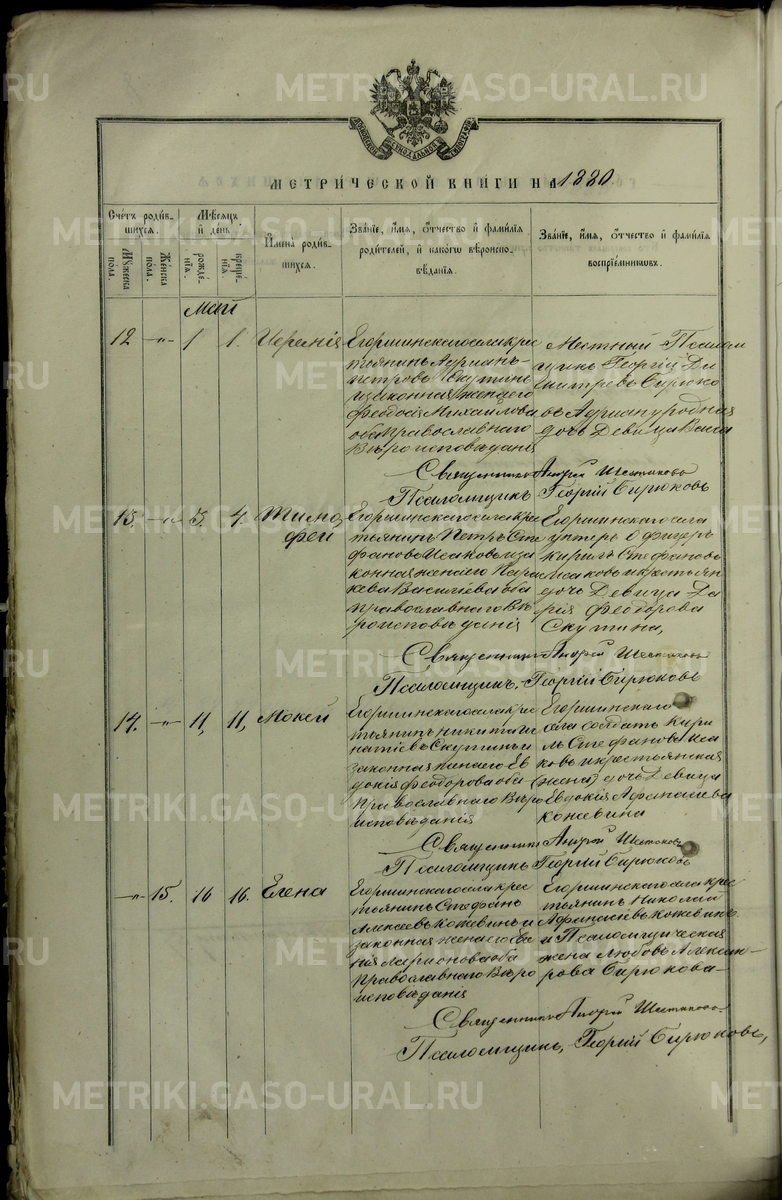 МЕТРИ́ЧЕСКОЙ КНИ́ГИ НА 1880.
Сче́тъ роди́вшихсѧ.
Мѣ́сѧцъ и҆ де́нь
И҆мена̀ роди́вшихсѧ.
Зва́нїе, и҆́мѧ, ѻ҆́тчество и҆ фами́лїѧ роди́телей, и҆ како́гѡ вѣроисповѣ́данїѧ.
Зва́нїе, и҆́мѧ, ѻ҆́тчество и҆ фами́лїѧ воспрїе́мникѡвъ.
Мꙋ́жеска по́ла.
Же́нска по́ла.
рожде́нїѧ.
креще́нїѧ.
Май
12 -"- 1 1. Иеремія
Егоршинскаго села кре
стьянинъ Адрианъ
Петровъ Скутинъ
и законная жена его
Феодосія Михаилова
оба православнаго
Вѣроисповѣданія
Местный Псалом
щикъ Георгій Ди
митревъ Бирюко
въ Адриану родная
дочь Девица Васса
Священникъ Андрей Шестаковъ
Псаломщикъ Георгій Бирюковъ
13. -"- 3. 4. Тимо
фей
Егоршинскаго села кре
стьянинъ Петръ Сте
фановъ Исаковъ и за
конная жена его Парас
кева Василіева оба
православнаго Вѣ
роисповѣданія
Егоршинскаго села
унтеръ офицеръ
Кирилъ Стефановъ
Исаковъ и крестьянк
дочь Девица Да
рія Феодорова
Скутина,
Священникъ Андрей Шестаковъ
Псаломщикъ. Георгій Бирюковъ
14. -"- 11, 11, Мокей
Егоршинскаго села кре
стьянинъ Никита Иг
натіевъ Скутинъ и
законная жена его Ев
докія Феодорова оба
православнаго Вѣро
исповѣданія
Егоршинскаго
села солдатъ Кири
лъ Стефановъ Иса
ковъ и крестьянская
(жена) дочь Девица
Евдокія Афанасьева
Кожевина
Священникъ Андрей Шестаковъ
Псаломщикъ Георгій Бирюковъ
-"- 15. 16 16. Елена
Егоршинскаго села крес
тьянинъ Стефанъ
Алексеевъ Кожевинъ и
законная жена его Ев
нія Ларионова оба
православнаго Вѣро
исповѣданія
Егоршинскаго села крес
тьянинъ Николай
Афанасіевъ Кожевинъ
и Псаломщическая
жена Любовь Алексан-
рова Бирюкова
Священникъ Андрей Шестаковъ
Псаломщикъ, Георгій Бирюковъ,
METRIKI.GASO-URAL.RU